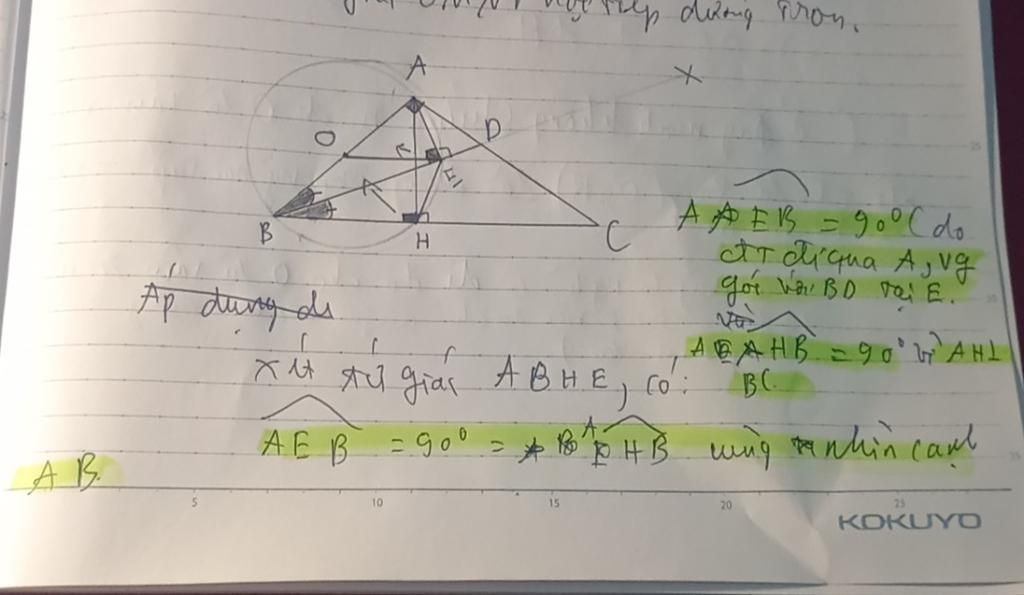 nội tiếp đường tròn.
A
X
O
D
E
B
H
C
AEB = 90° (do
đT đi qua A, vg
góc với BD tại E.
AHB = 90° vì AH⊥
BC.
Áp dụng
xét tứ giác ABHE, có:
AEB = 90° = AHB cùng nhìn cạnh
AB.
5 10 15 20 25
KOKUYO